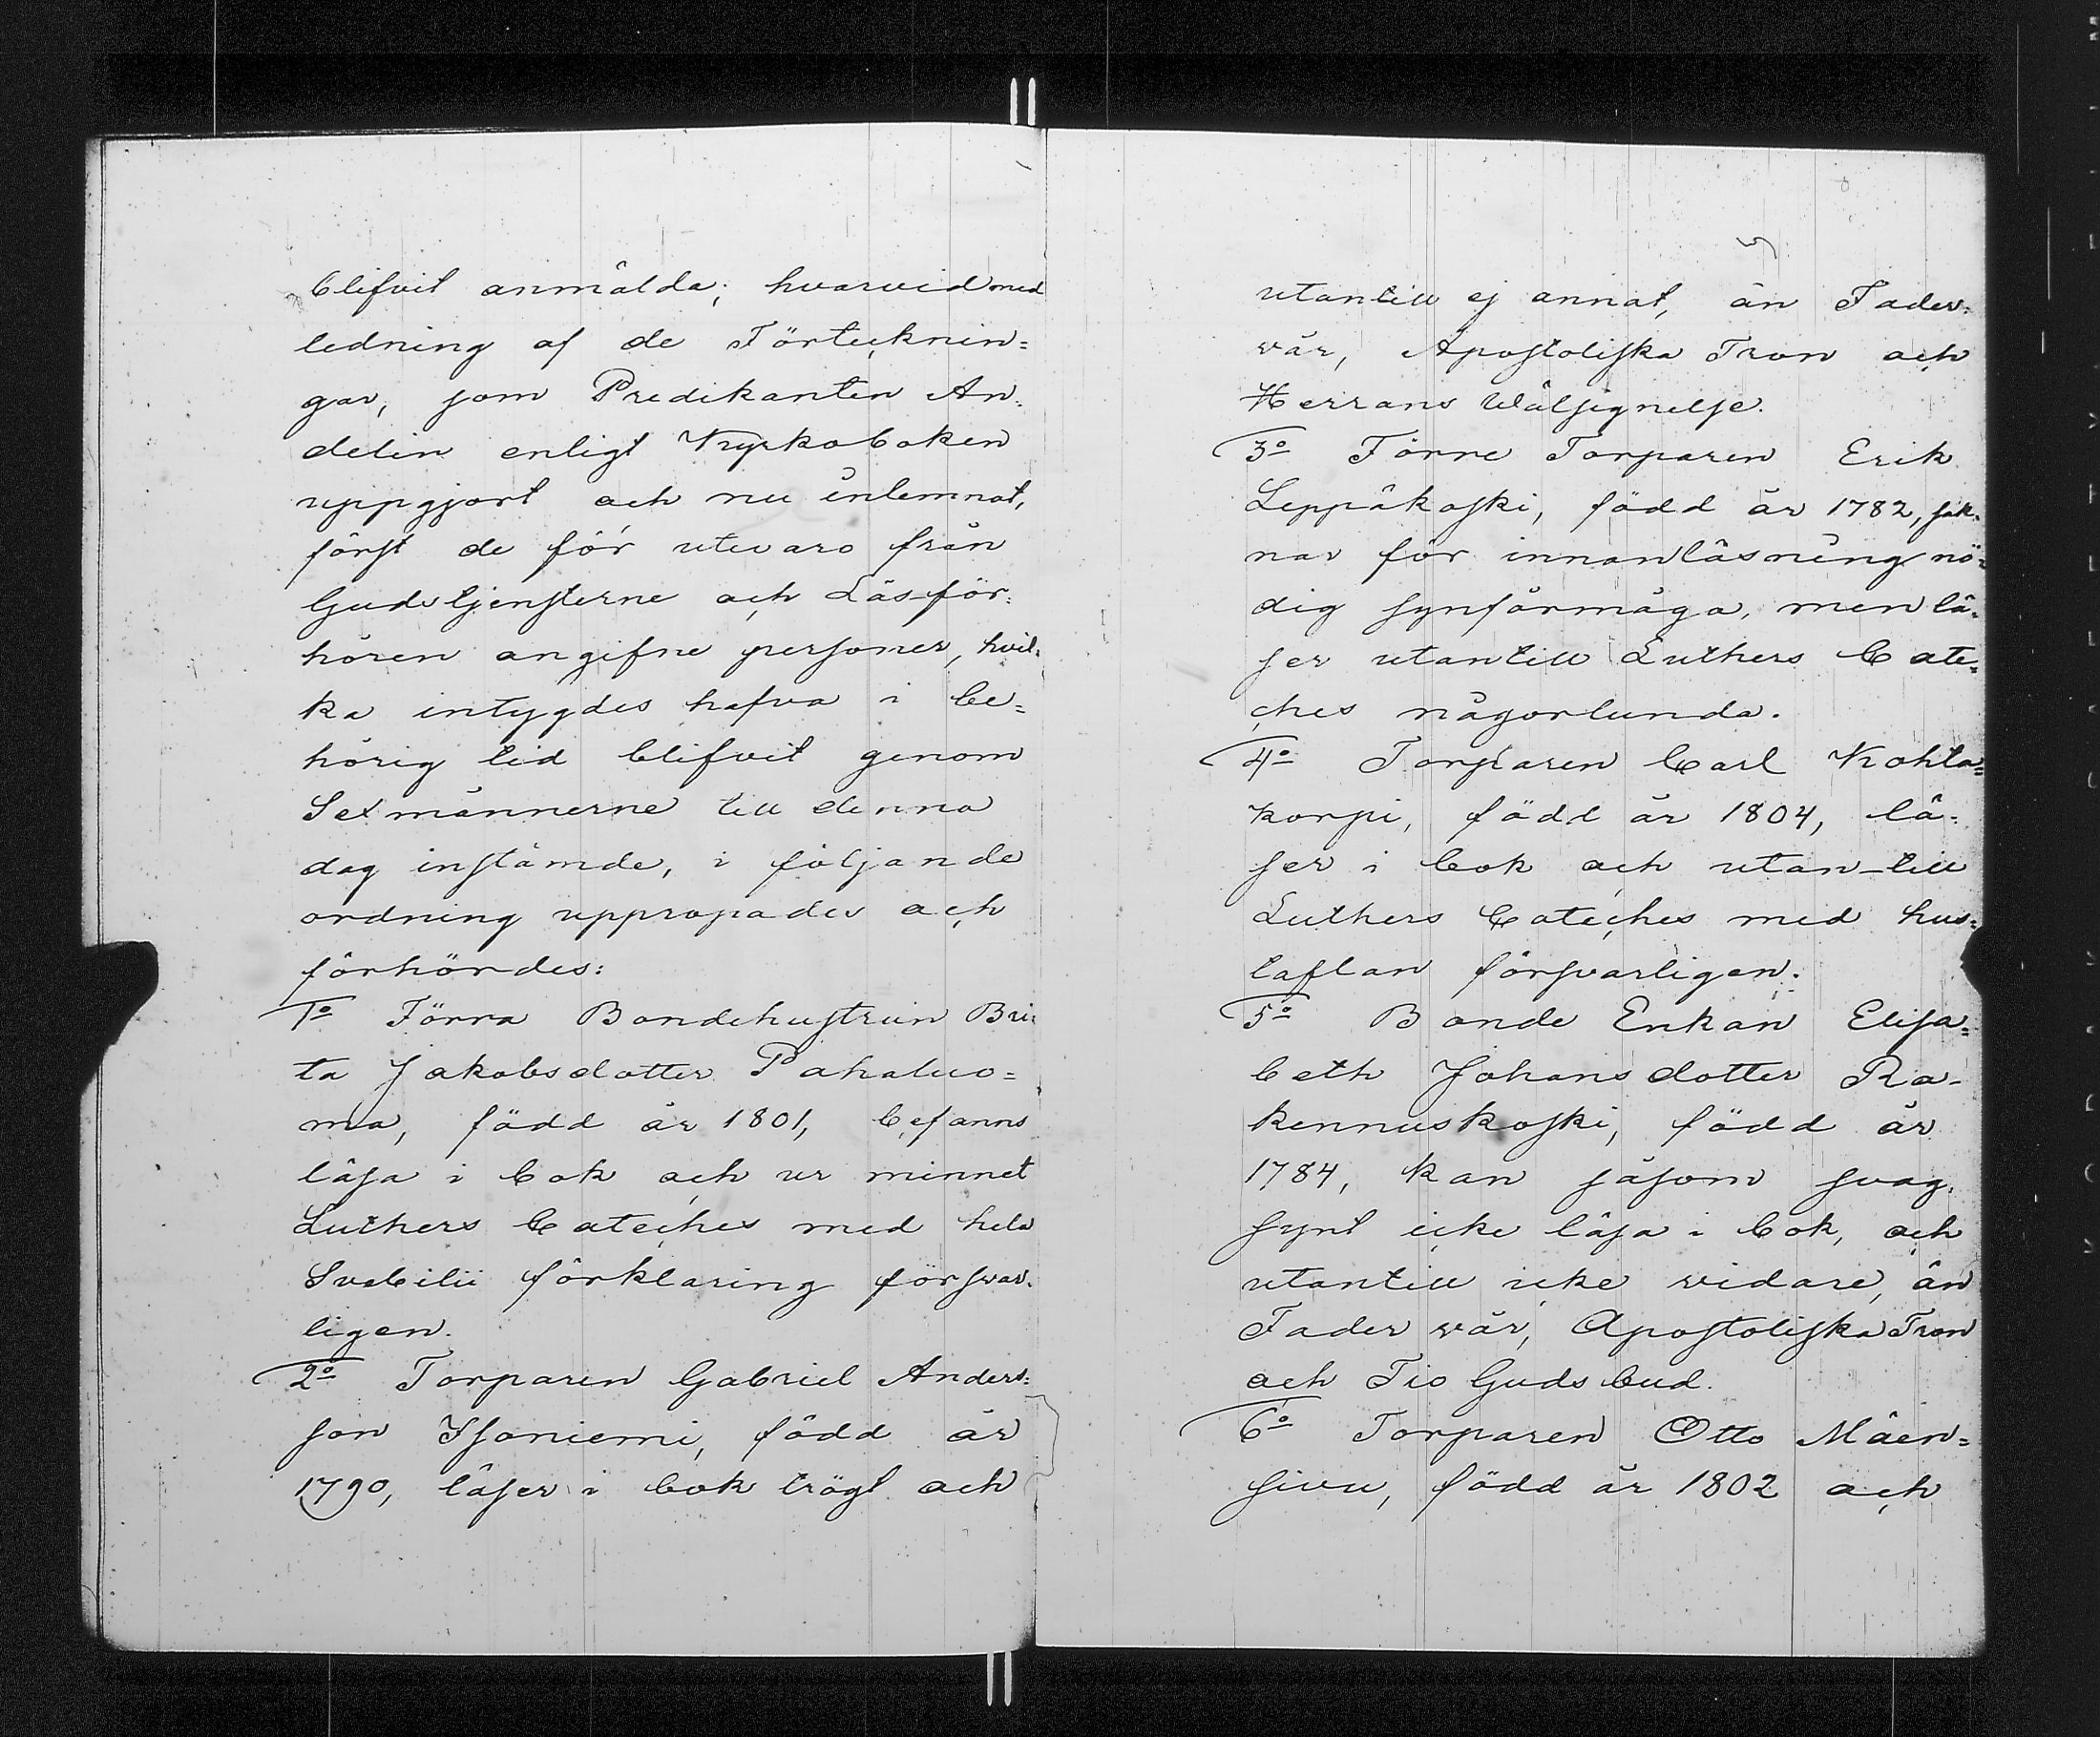 blifvit anmälda; hvarvid med
ledning af de Förtecknin=
gar, som Predikanten An=
delin enligt Kyrkoboken
uppgjort och nu inlemnat,
först de för utevaro från
Gudstjensterne och Läs-för=
hören angifne personer, hvil=
ka intygdes hafva i be=
hörig tid blifvit genom
Sexmännerne till denna
dag instämde, i följande
ordning uppropades och
förhördes:
1o Förra Bondehustrun Bri=
ta Jakobsdotter Pahaluo=
ma, född år 1801, befanns
läsa i bok och ur minnet
Luthers Cateches med hela
Svebilii förklaring försvar=
ligen.
2o Torparen Gabriel Anders=
son Isoniemi, född år
1790, läser i bok trögt och
5
utantill ej annat, än Fader=
vår, Apostoliska Tron och
Herrans Wälsignelse.
3o Förre Torparen Erik
Leppäkoski, född år 1782, sak=
nar för innanläsning nö=
dig synförmåga, men lä=
ser utantill Luthers Cate=
ches någorlunda.
4o Torparen Carl Kohta=
korpi, född år 1804, lä=
ser i bok och utan-till
Luthers Cateches med hus=
taflan försvarligen.
5o Bonde Enkan Elisa=
beth Johansdotter Ra=
kennuskoski, född år
1784, kan såsom svag=
synt icke läsa i bok, och
utantill icke vidare, än
Fader vår, Apostoliska Tron
och Tio Guds bud.
6o Torparen Otto Mäen=
sivu, född år 1802 och